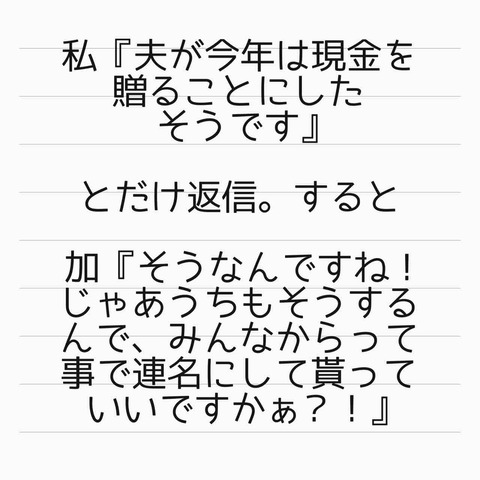 私『夫が今年は現金を
贈ることにした
そうです』
とだけ返信。すると
加『そうなんですね！
じゃあうちもそうする
んで、みんなからって
事で連名にして貰って
いいですかぁ？！』